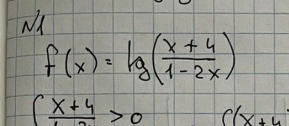 N1
f(x) = lg((x+4)/(1-2x))
{ (x+4)/ > 0 {(x+4